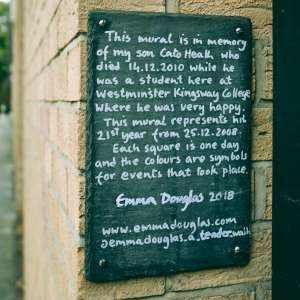 This mural is in memory
of my son Cato Heath who
died 14.12.2010 while he
was a student here at
Westminster Kingsway College
Where he was very happy.
This mural represents his
21st year from 25.12.2008.
Each square is one day
and the colours are symbols
for events that took place.
Emma Douglas 2018
www.emmadouglas.com
@emmadouglas_a_tender_walk